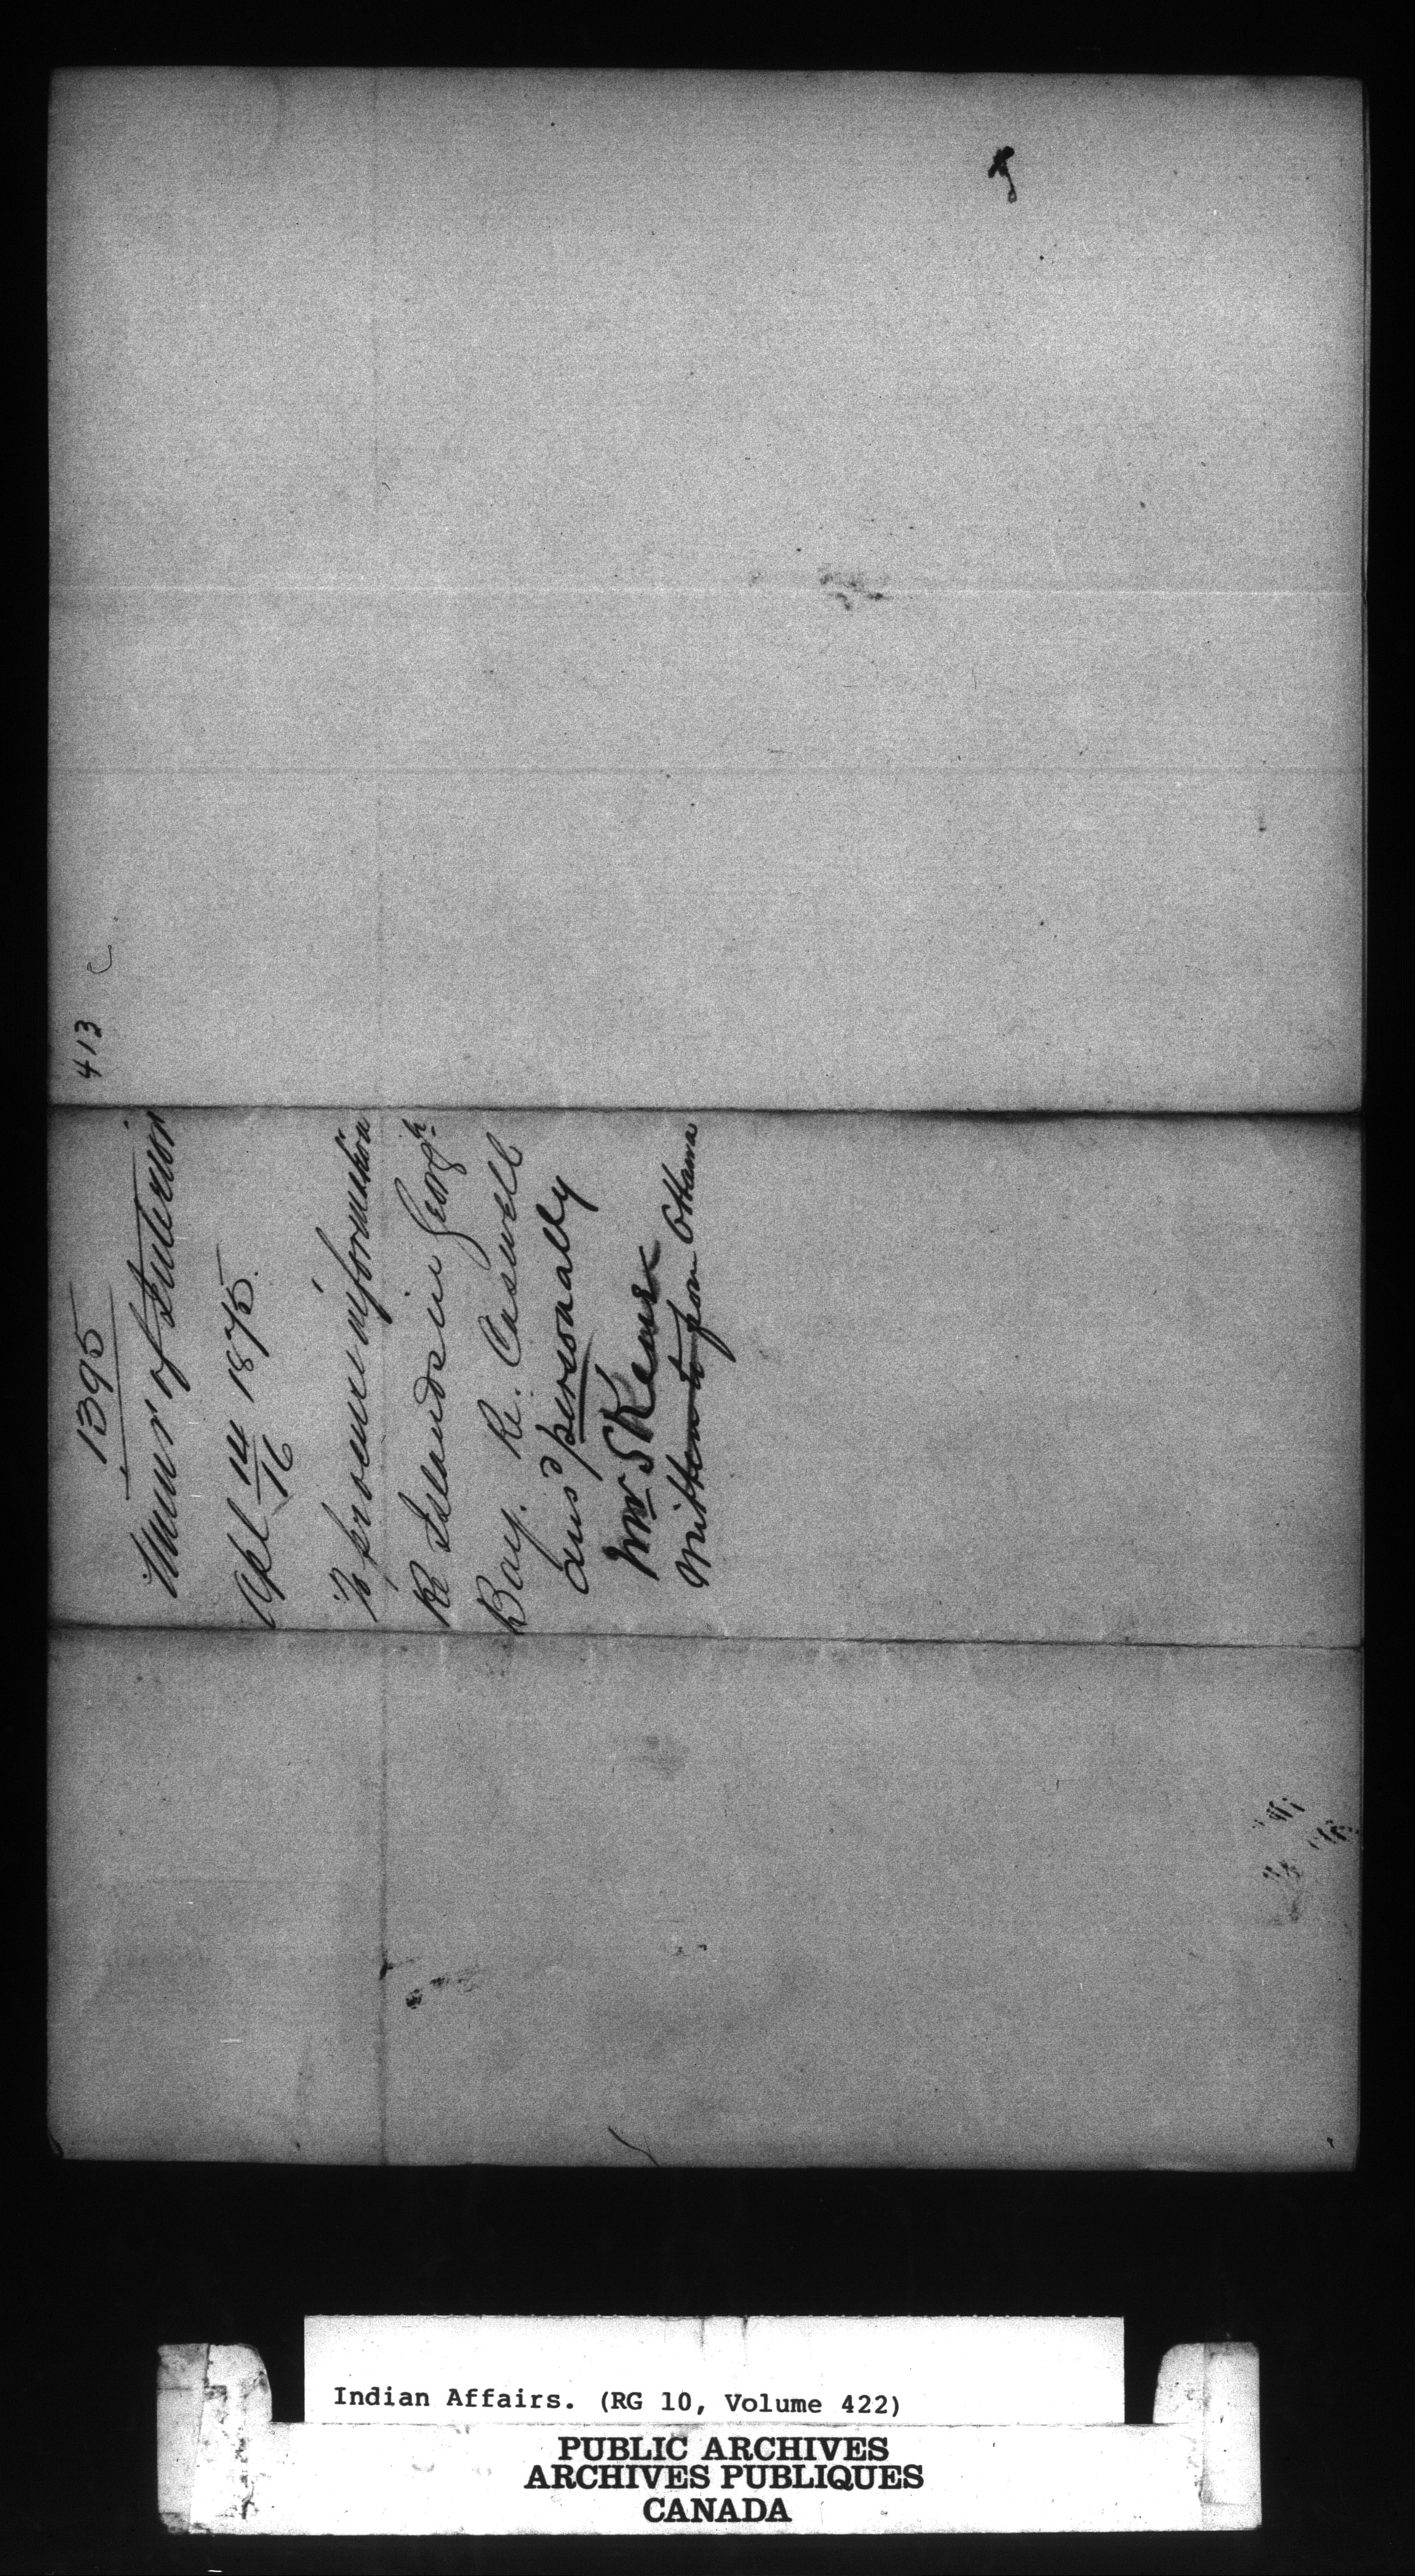 413
1395
Minr of Interior
Apl 14/16 1875.
To procure information
Re Islands in Georgn
Bay. Re. Caswell
ansd personally
Wm
written to from Ottawa
Indian Affairs. (RG 10, Volume 422)
PUBLIC ARCHIVES
ARCHIVES PUBLIQUES
CANADA